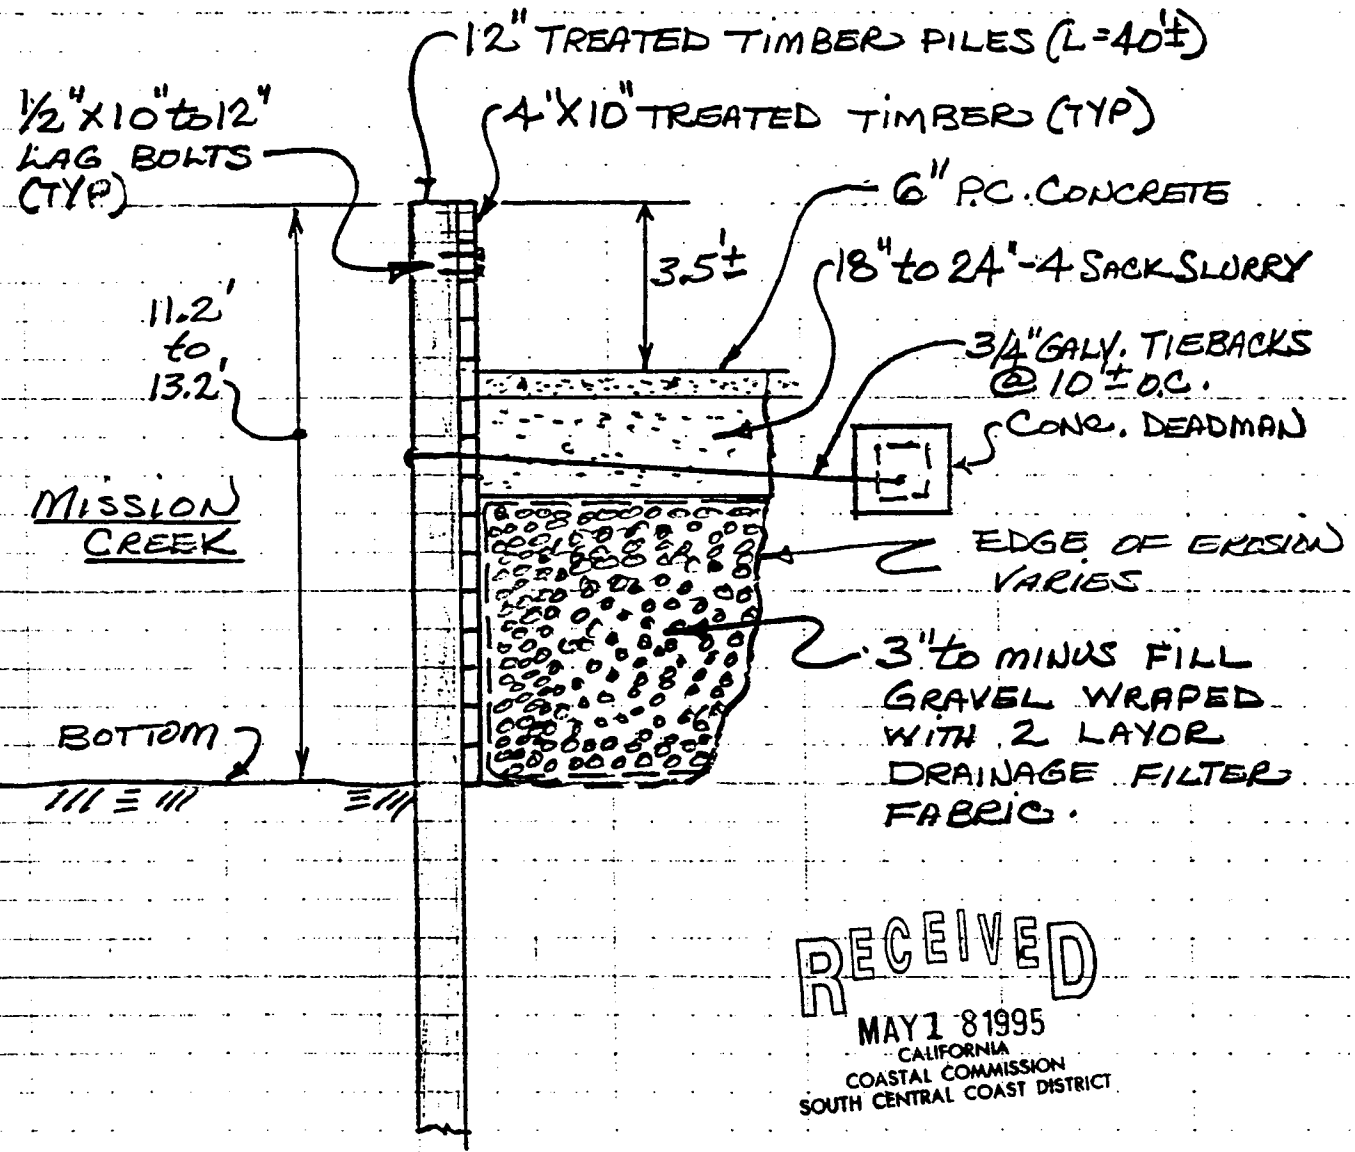 12" TREATED TIMBER PILES (L=40'±)
1/2"X10"to12"
LAG BOLTS
(TYP)
4"X10" TREATED TIMBER (TYP)
6" P.C. CONCRETE
3.5'±
18" to 24"-4 SACK SLURRY
11.2'
to
13.2'
3/4" GALV. TIEBACKS
@ 10'± O.C.
CONC. DEADMAN
MISSION
CREEK
EDGE OF EROSION
VARIES
3" to MINUS FILL
GRAVEL WRAPED
WITH 2 LAYOR
DRAINAGE FILTER
FABRIC.
BOTTOM
RECEIVED
MAY 1 8 1995
CALIFORNIA
COASTAL COMMISSION
SOUTH CENTRAL COAST DISTRICT